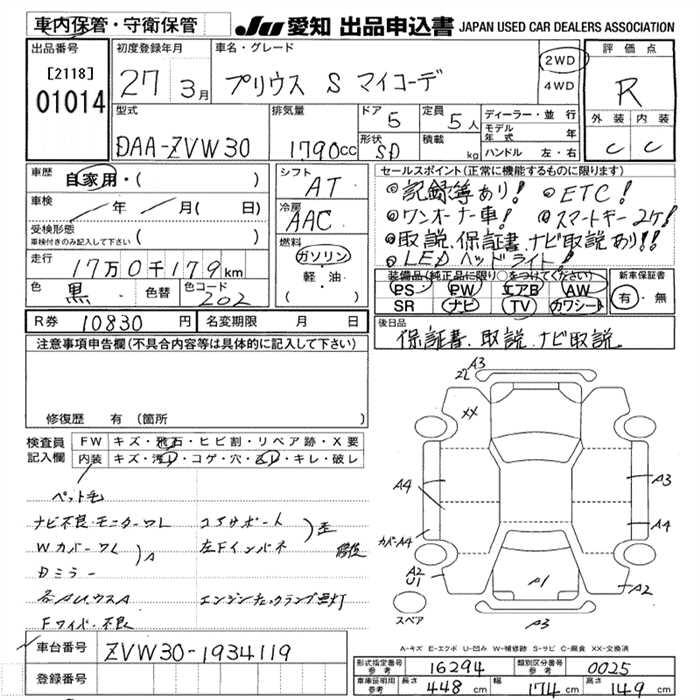 車内保管・守衛保管
JU 愛知 出品申込書 JAPAN USED CAR DEALERS ASSOCIATION
出品番号
[2118]
01014
初度登録年月
27 3月
車名・グレード
プリウス S マイコーデ
2WD
4WD
評価点
R
外装 内装
C C
型式
DAA-ZVW30
排気量
1790cc
ドア 5
形状 SD
定員 5人
積載 kg
ディーラー・並行
モデル年式 年
ハンドル 左・右
車歴 自家用・( )
車検 年 月( 日)
受検形態
車検付きのみ記入して下さい ( )
走行 17万0千179km
色 黒 色替 色コード 202
シフト AT
冷房 AAC
燃料
ガソリン
軽・油
( )
セールスポイント(正常に機能するものに限ります)
◎記録簿あり! ◎ETC!
◎ワンオーナー車! ◎スマートキー2ケ!
◎取説、保証書、ナビ取説あり!!
◎LEDヘッドライト!
装備品(純正品に限り○をつけてください)
PS PW エアB AW
SR ナビ TV カワシート
新車保証書
有・無
R券 10830円 名変期限 月 日
後日品
保証書、取説、ナビ取説
注意事項申告欄(不具合内容等は具体的に記入して下さい)
修復歴 有(箇所 )
検査員記入欄
FW キズ・飛石・ヒビ割・リペア跡・X要
内装 キズ・汚レ・コゲ・穴・スレ・キレ・破レ
ペット毛
ナビ不良・モニターワレ コアサポート 歪
Wカバーワレ A 左Fインパネ
Dミラー
エンジンチェックランプ点灯
Fワイパー不良
車台番号 ZVW30-1934119
登録番号
A3
2L
XX
A4
カバーA4
A2
U1
A1
A3
A4
A2
A3
スペア
A-キズ E-エクボ U-凹み W-補修跡 S-サビ C-腐食 XX-交換済
形式指定番号 参考 16294 類別区分番号 参考 0025
車庫証明用 参考 長さ 448cm 幅 174cm 高さ 149cm